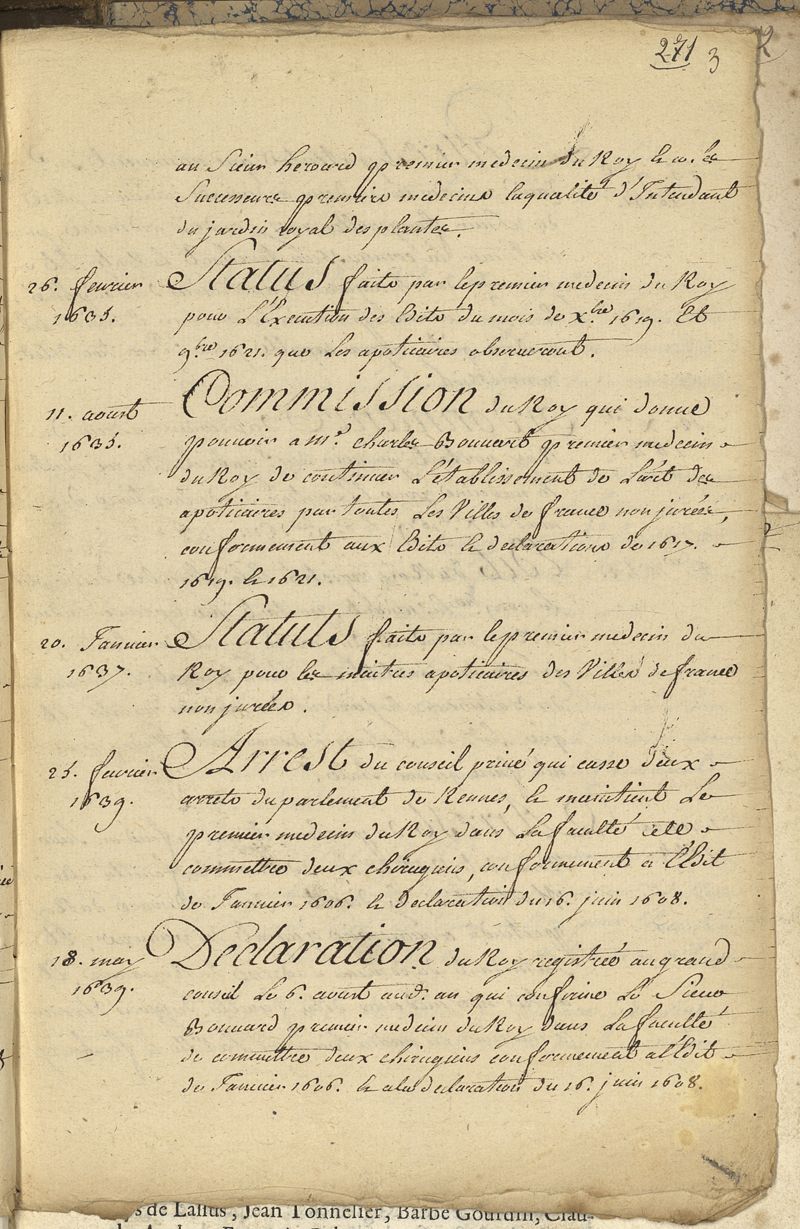 271 3
2
au Sieur herouard premier medecin du Roy & a les
Successeurs premiers medecins la qualité d'Intendant
du jardin royal des plantes.
26. fevrier Statuts faits par le premier medecin du Roy
1635. pour L'Execution des Edits du mois de Xbre 1619. Et
9bre 1621. que Les apoticaires observeront.
11. aoust Commission du Roy qui donne
1635. pouvoir a Mr. Charles Bouvart premier medecin
du Roy de continuer L'établissement de L'art des
apoticaires par toutes Les Villes de france non jurées,
conformement aux Edits & declarations de 1617.
1619. & 1621.
20. Janvier Statuts faits par le premier medecin du
1637. Roy pour les maitres apoticaires des Villes de france
non jurées.
25. fevrier Arrest du conseil privé qui casse deux
1639. arrets du parlement de Rennes, & maintient Le
premier medecin du Roy dans La faculté de
commettre deux chirugiens, conformement a l'Edit
de Janvier 1606. & Declaration du 16. juin 1608.
18. may Declaration du Roy registrée au grand
1639. conseil Le 6. aoust aud. an qui confirme Le Sieur
Bouvard premier medecin du Roy dans La faculté
de commettre deux chirugiens conformement a l'Edit
de Janvier 1606. & a la declaration du 16. juin 1608.
de Lallus, Jean Tonnelier, Barbe Gourdin, Clau-